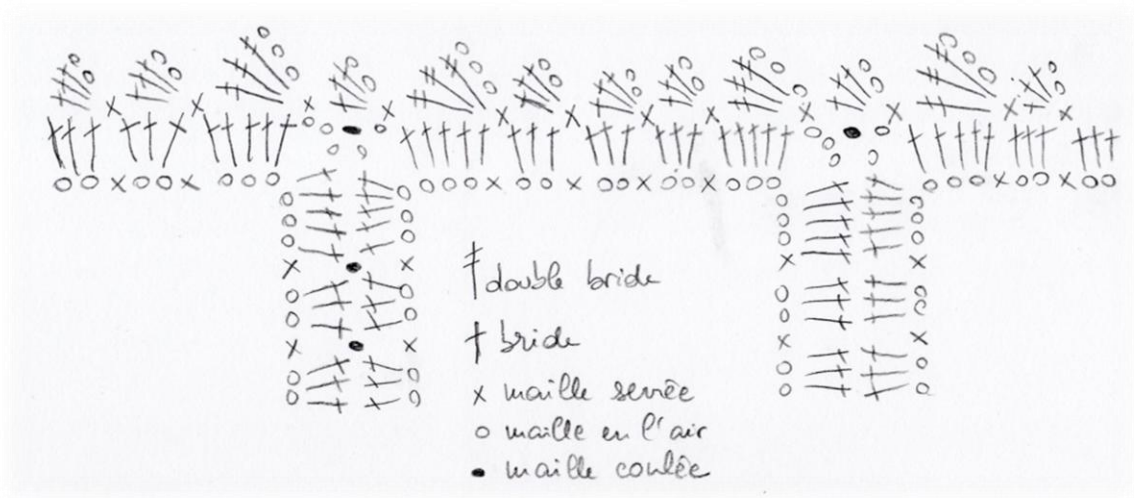 double bride
bride
x maille serrée
o maille en l'air
maille coulée